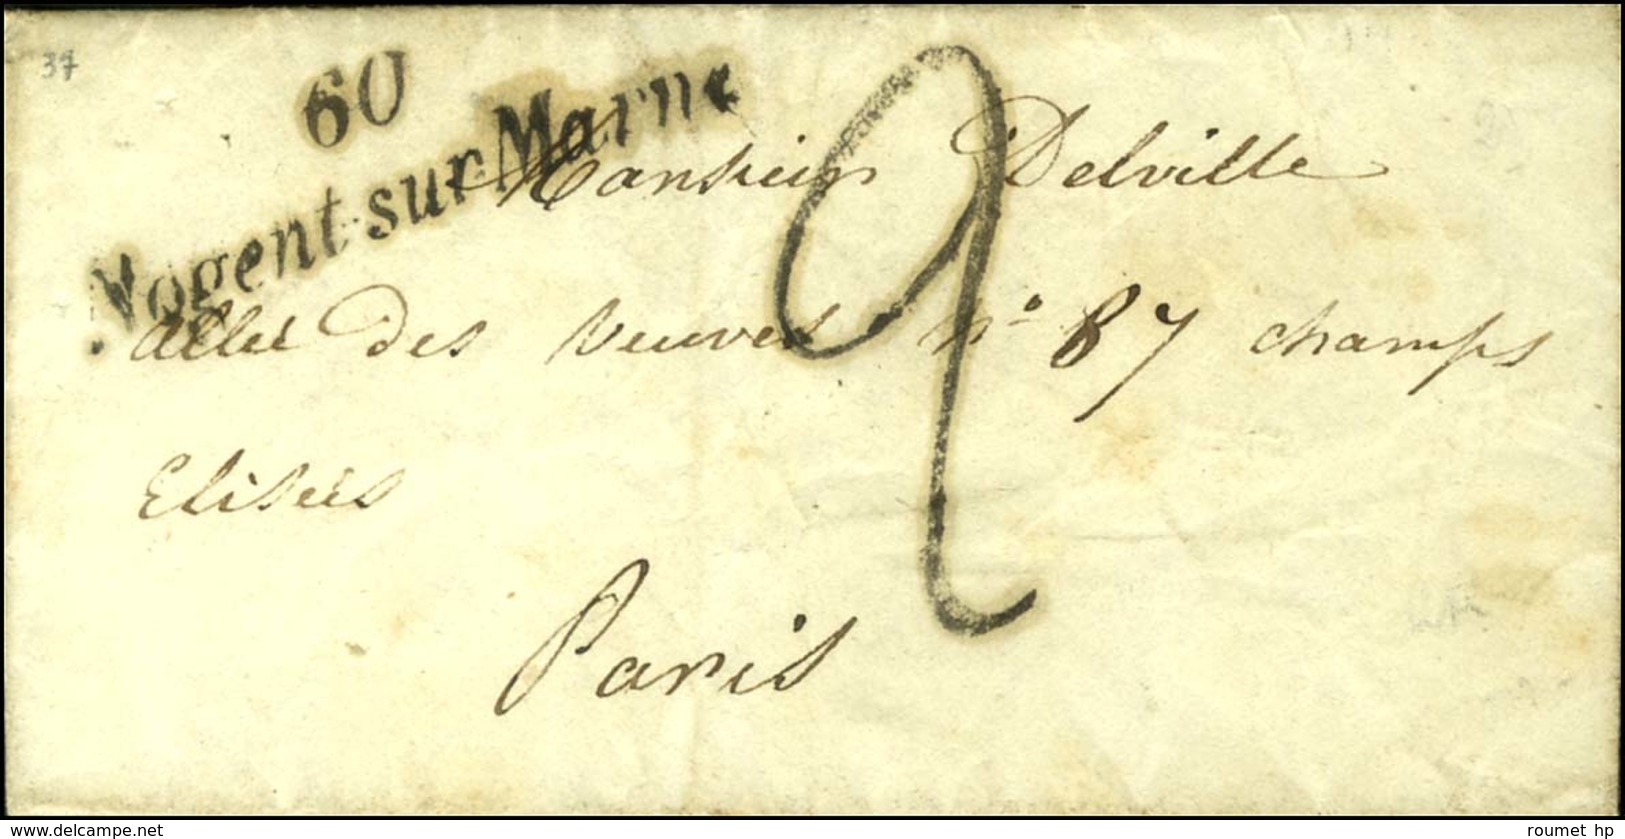 37
60
Nogent-sur-Marne
Monsieur Delville
allée des veuves n° 87 champs
Elisées
2
Paris
www.delcampe.net
roumet hp